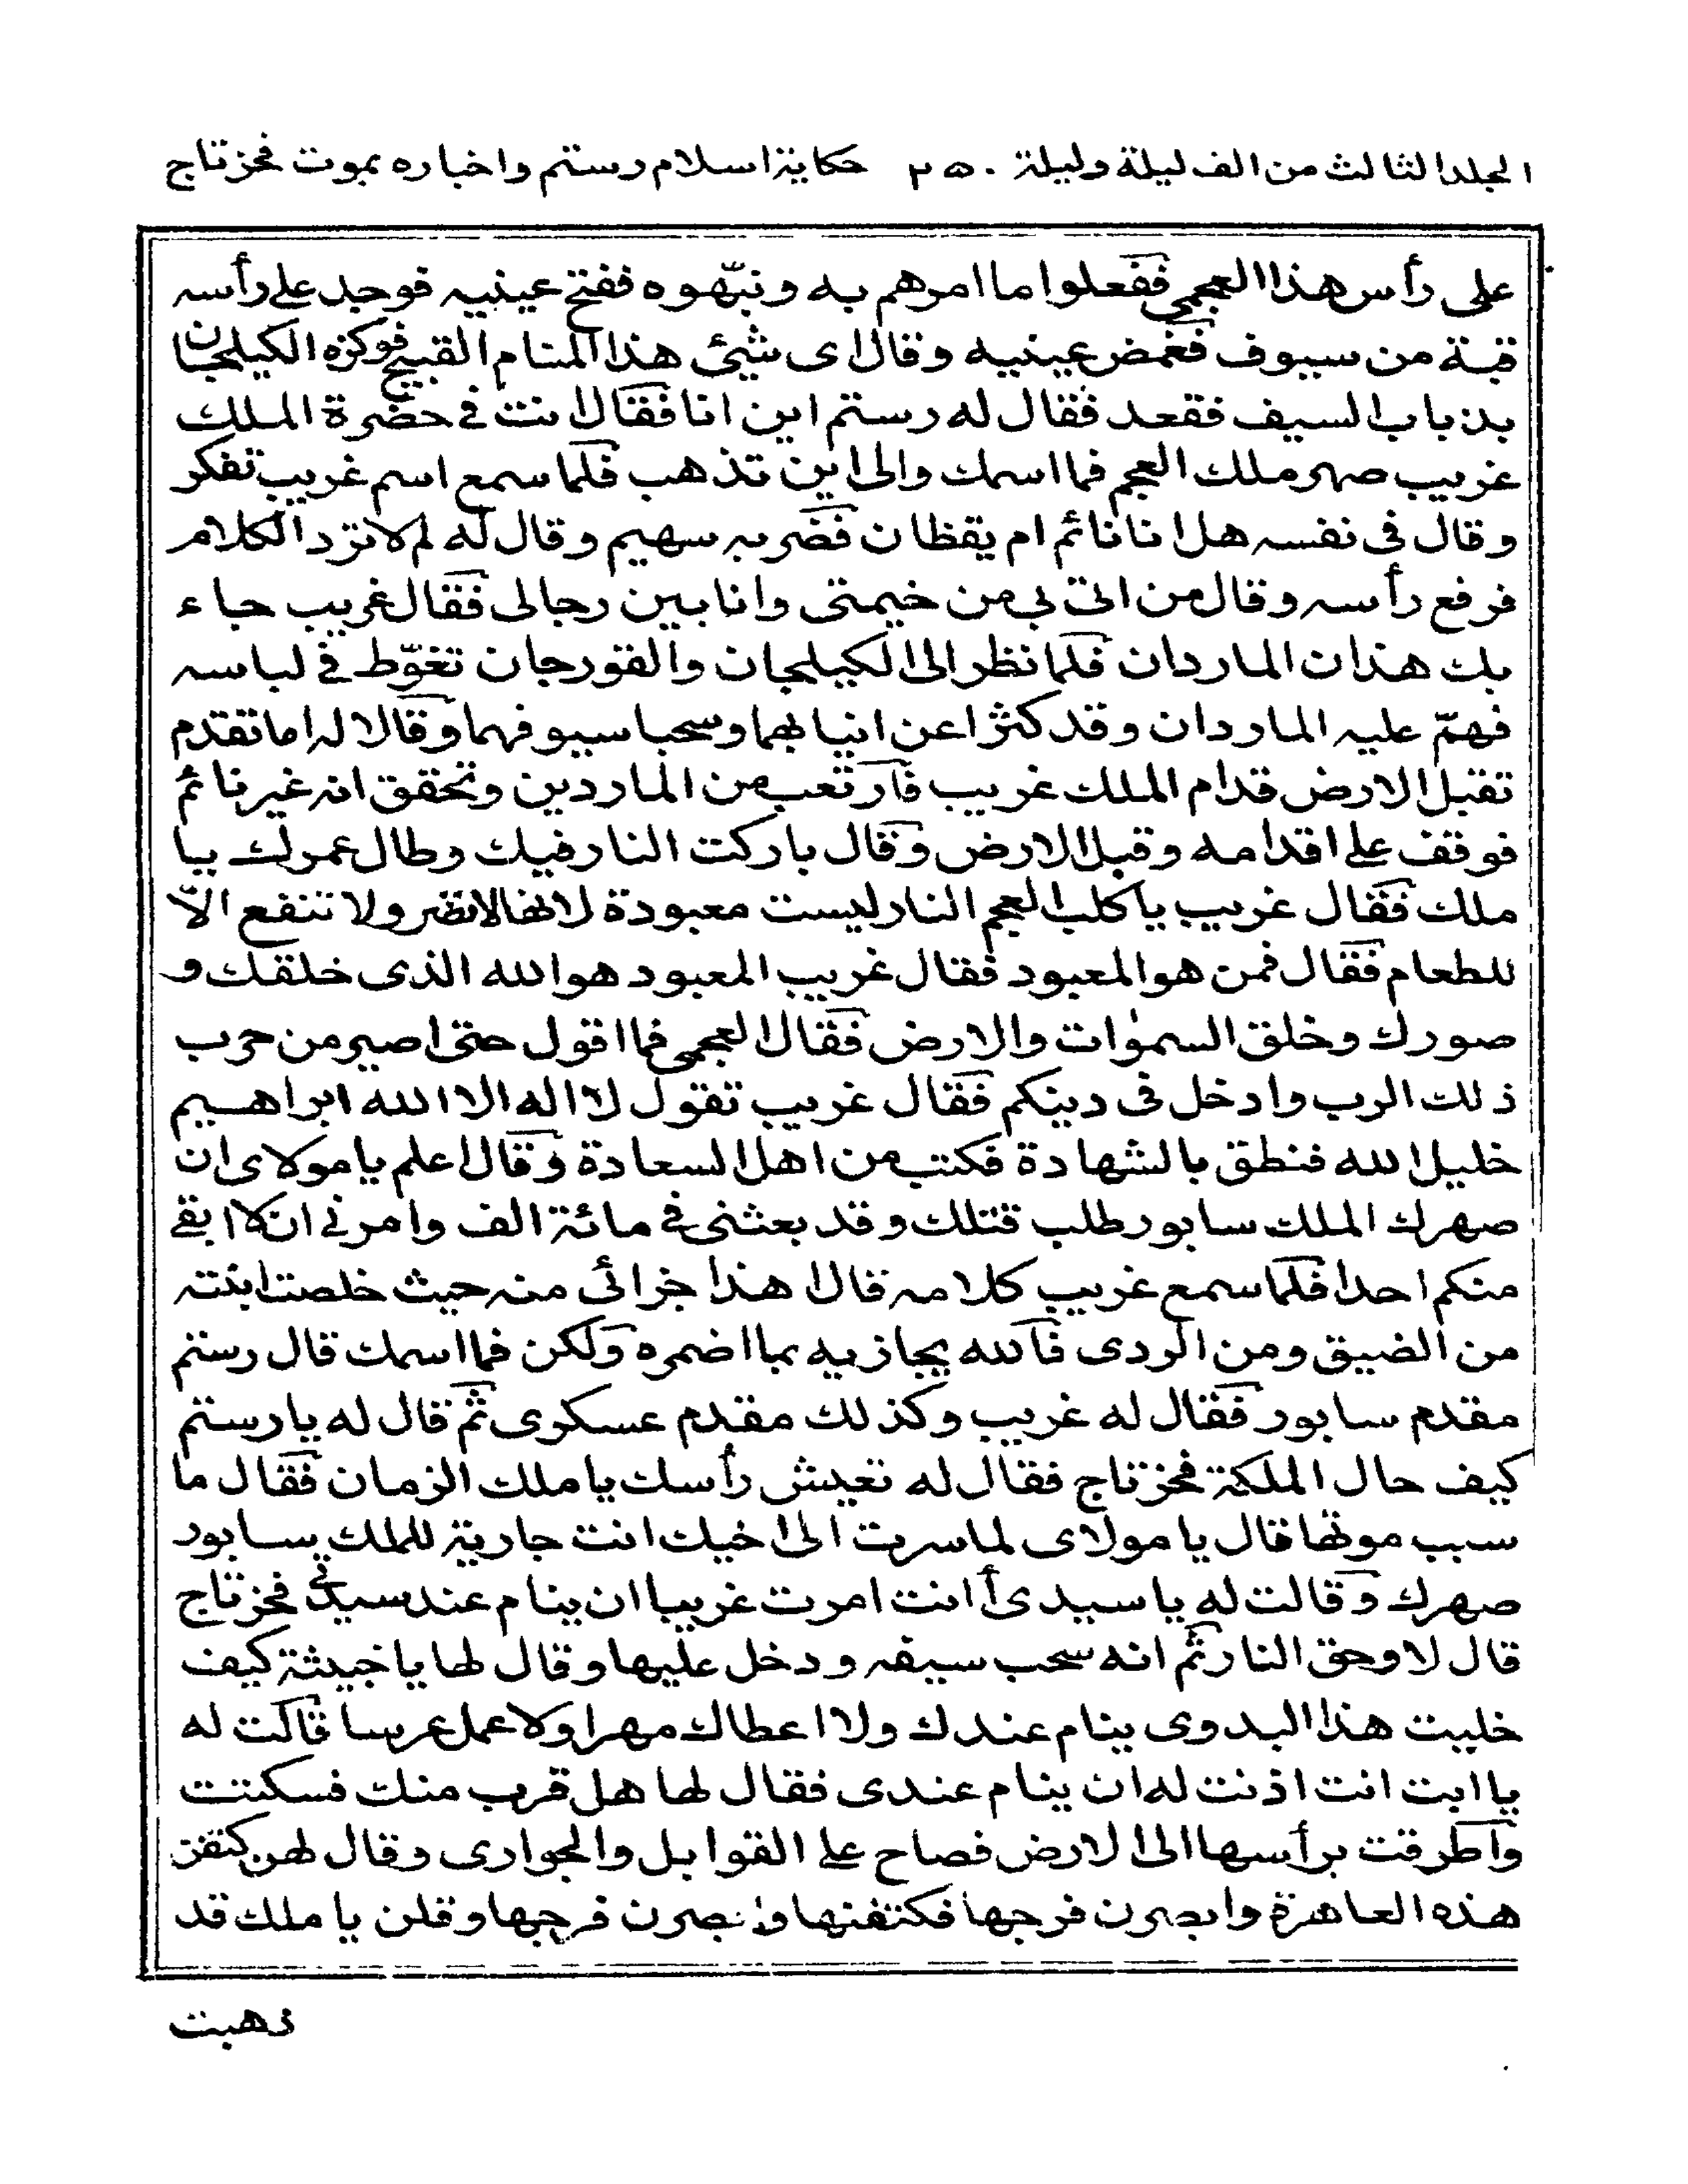 المجلد الثالث من الف ليلة وليلة ٢٥٠ حكاية اسلام رستم واخباره بموت فخرتاج
على رأس هذا العجمي ففعلوا ما امرهم به ونبّهوه ففتح عينيه فوجد على رأسه
قبة من سيوف فغمض عينيه وقال اى شيئ هذا المنام القبيح فوكزه الكيلجان
بذباب السيف فقعد فقال له رستم اين انا فقال انت في حضرة الملك
غريب صهر ملك العجم فما اسمك والى اين تذهب فلما سمع اسم غريب تفكر
وقال فى نفسه هل انا نائم ام يقظان فضربه سهيم وقال له لم لا ترد الكلام
فرفع رأسه وقال من اتى بى من خيمتى وانا بين رجالى فقال غريب جاء
بك هذان الماردان فلما نظر الى الكيلجان والقورجان تغوّط في لباسه
فهمّ عليه الماردان وقد كشرا عن انيابهما وسحبا سيوفهما وقالا له اما تقدم
تقبل الارض قدام الملك غريب فارتعب من الماردين وتحقق انه غير نائم
فوقف على اقدامه وقبل الارض وقال باركت النار فيك وطال عمرك يا
ملك فقال غريب يا كلب العجم النار ليست معبودة لانها لا تضر ولا تنفع الاّ
للطعام فقال فمن هو المعبود فقال غريب المعبود هو الله الذى خلقك و
صورك وخلق السمٰوات والارض فقال العجمى فما اقول حتى اصير من حزب
ذلك الرب وادخل فى دينكم فقال غريب تقول لا اله الا الله ابراهيم
خليل الله فنطق بالشهادة فكتب من اهل السعادة وقال اعلم يا مولاى ان
صهرك الملك سابور طلب قتلك وقد بعثنى في مائة الف وامرني ان لا ابقى
منكم احدا فلما سمع غريب كلامه قال اهذا جزائى منه حيث خلصت ابنته
من الضيق ومن الردى فالله يجازيه بما اضمره ولكن فما اسمك قال رستم
مقدم سابور فقال له غريب وكذلك مقدم عسكرى ثم قال له يا رستم
كيف حال الملكة فخرتاج فقال له تعيش رأسك يا ملك الزمان فقال ما
سبب موتها قال يا مولاى لما سرت الى اخيك اتت جارية للملك سابور
صهرك وقالت له يا سيدى أانت امرت غريبا ان ينام عند سيدتي فخرتاج
قال لا وحق النار ثم انه سحب سيفه ودخل عليها وقال لها يا خبيثة كيف
خليت هذا البدوى ينام عندك ولا اعطاك مهرا ولا عمل عرسا قالت له
يا ابت انت اذنت له ان ينام عندى فقال لها هل قرب منك فسكتت
واطرقت برأسها الى الارض فصاح على القوابل والجوارى وقال لهن كتفن
هذه العاهرة وابصرن فرجها فكتفنها وابصرن فرجها وقلن يا ملك قد
ذهبت